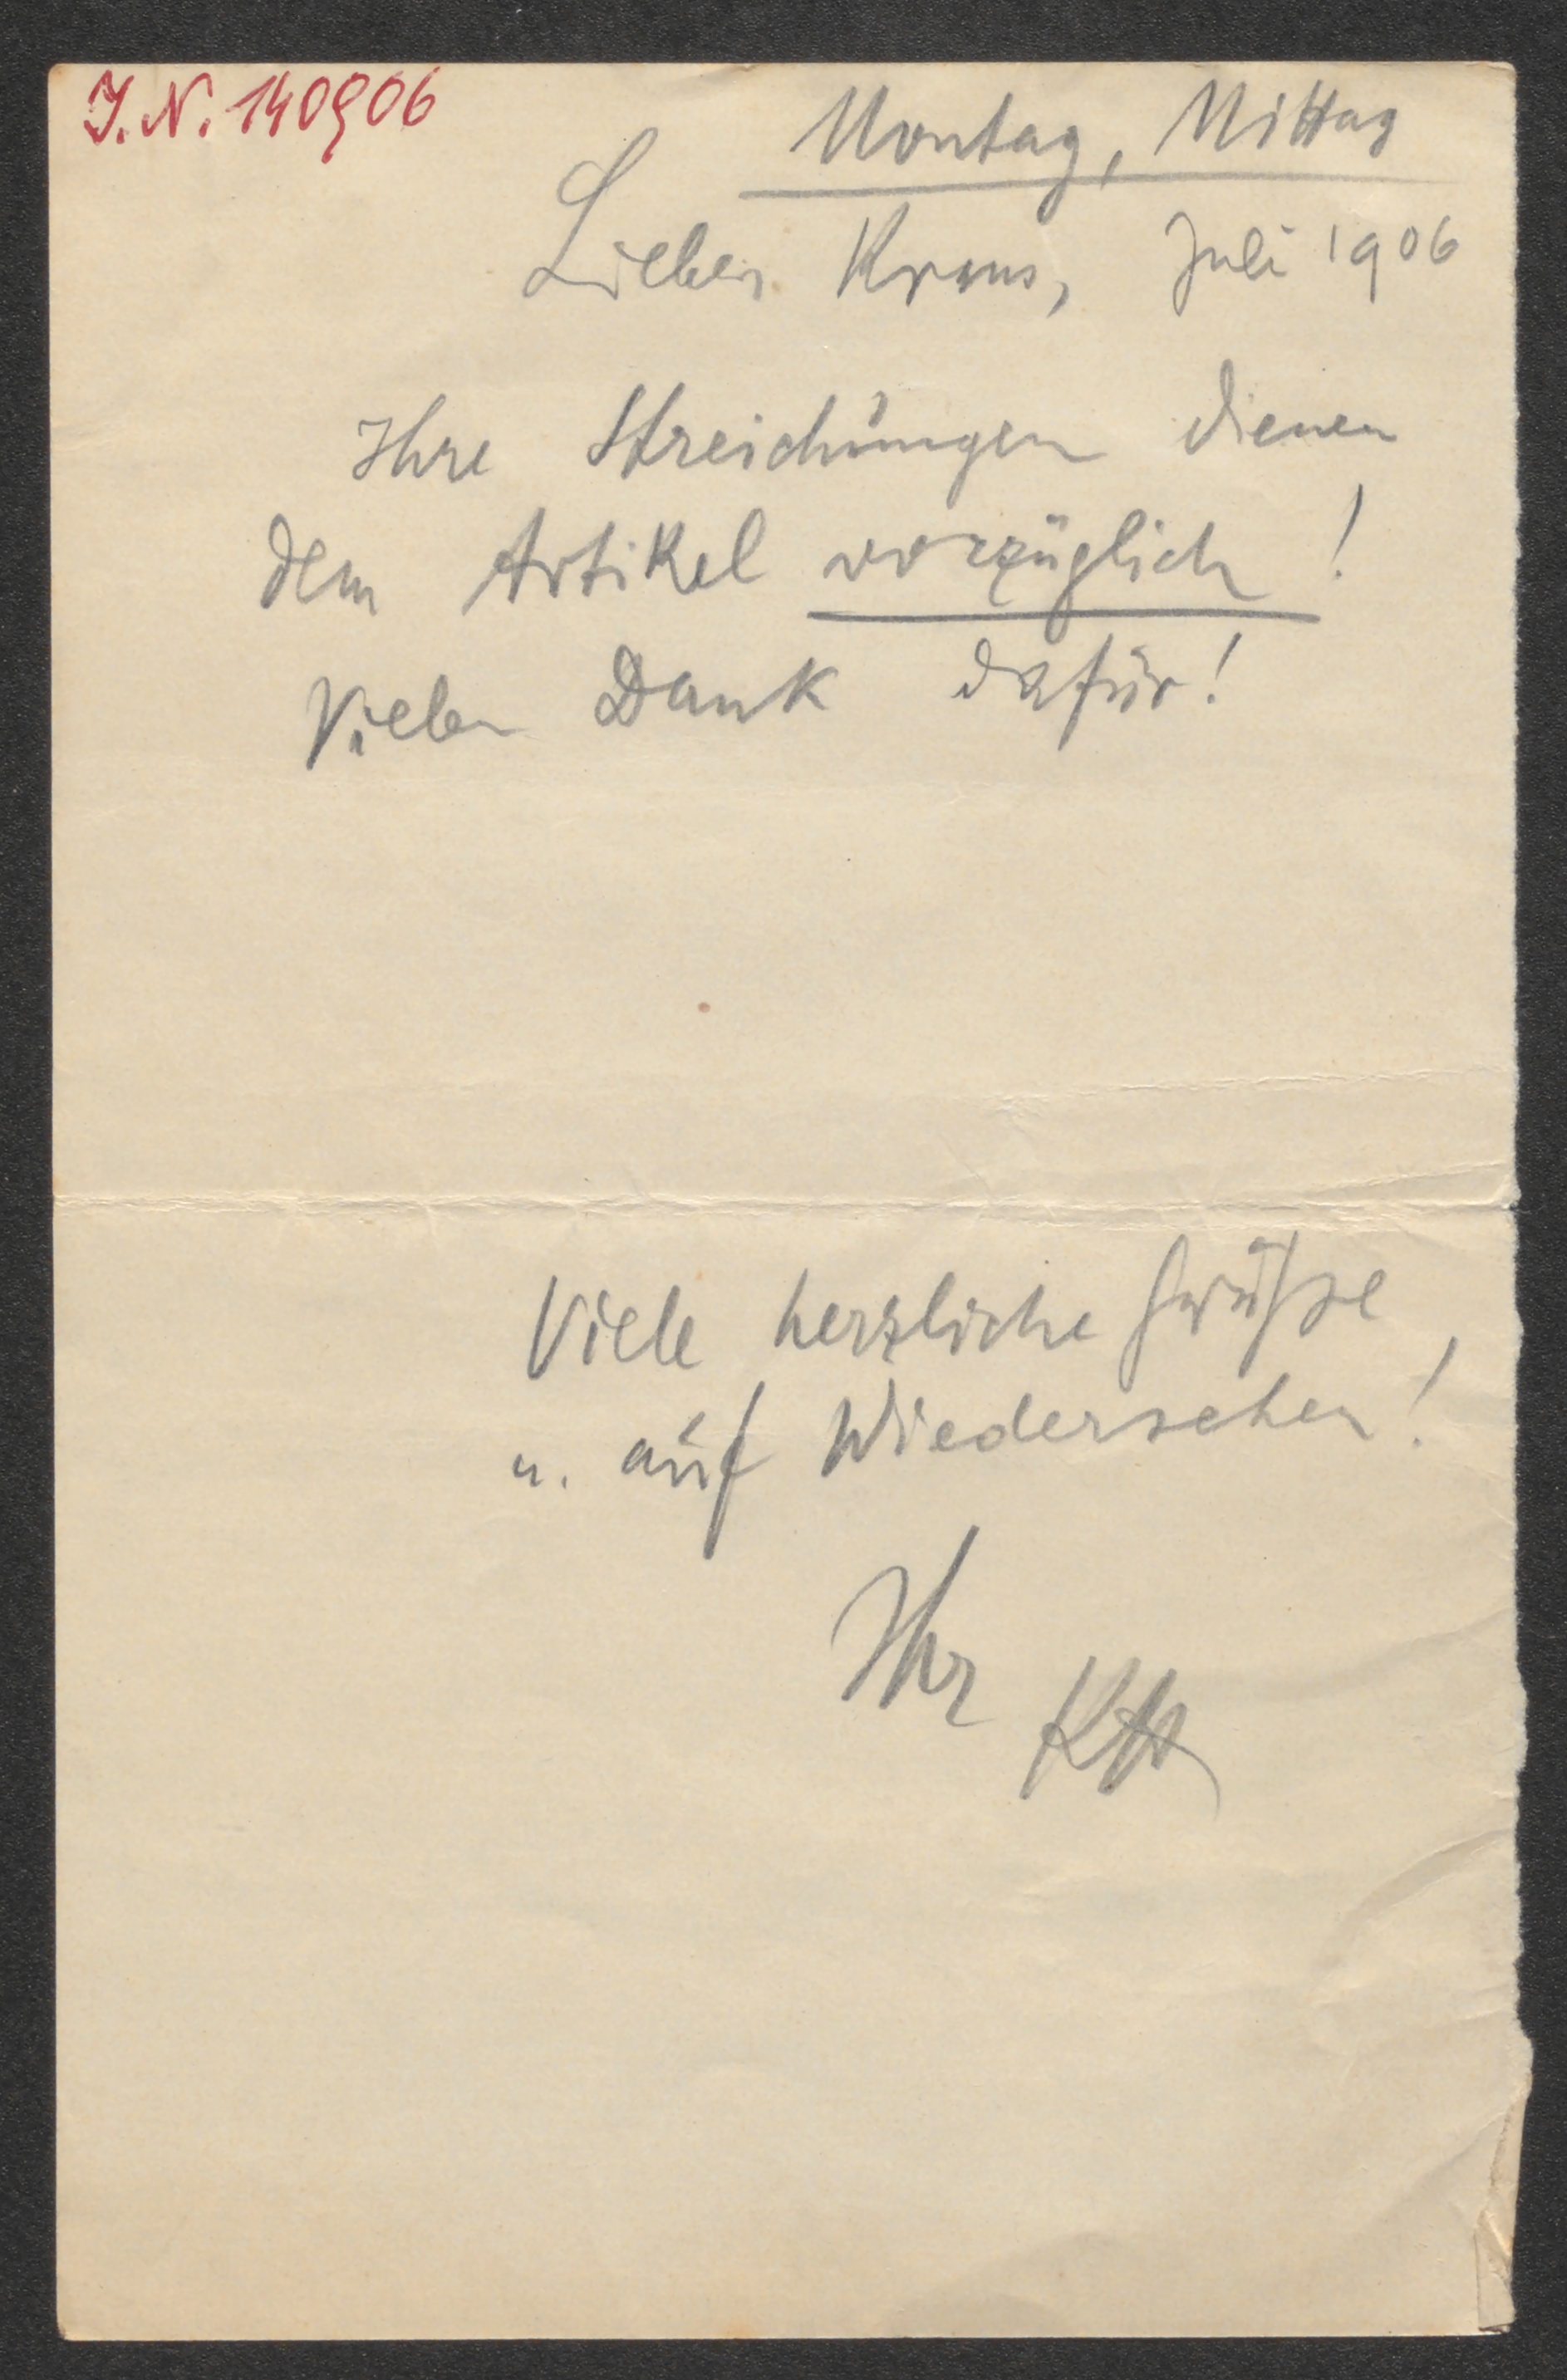 J. N. 140906
Montag, Mittag
Lieber Kraus, Juli 1906
Ihre Streichungen dienen
dem Artikel vorzüglich!
Vielen Dank dafür!
Viele herzliche Grüße,
u. auf Wiedersehen!
Ihr KH